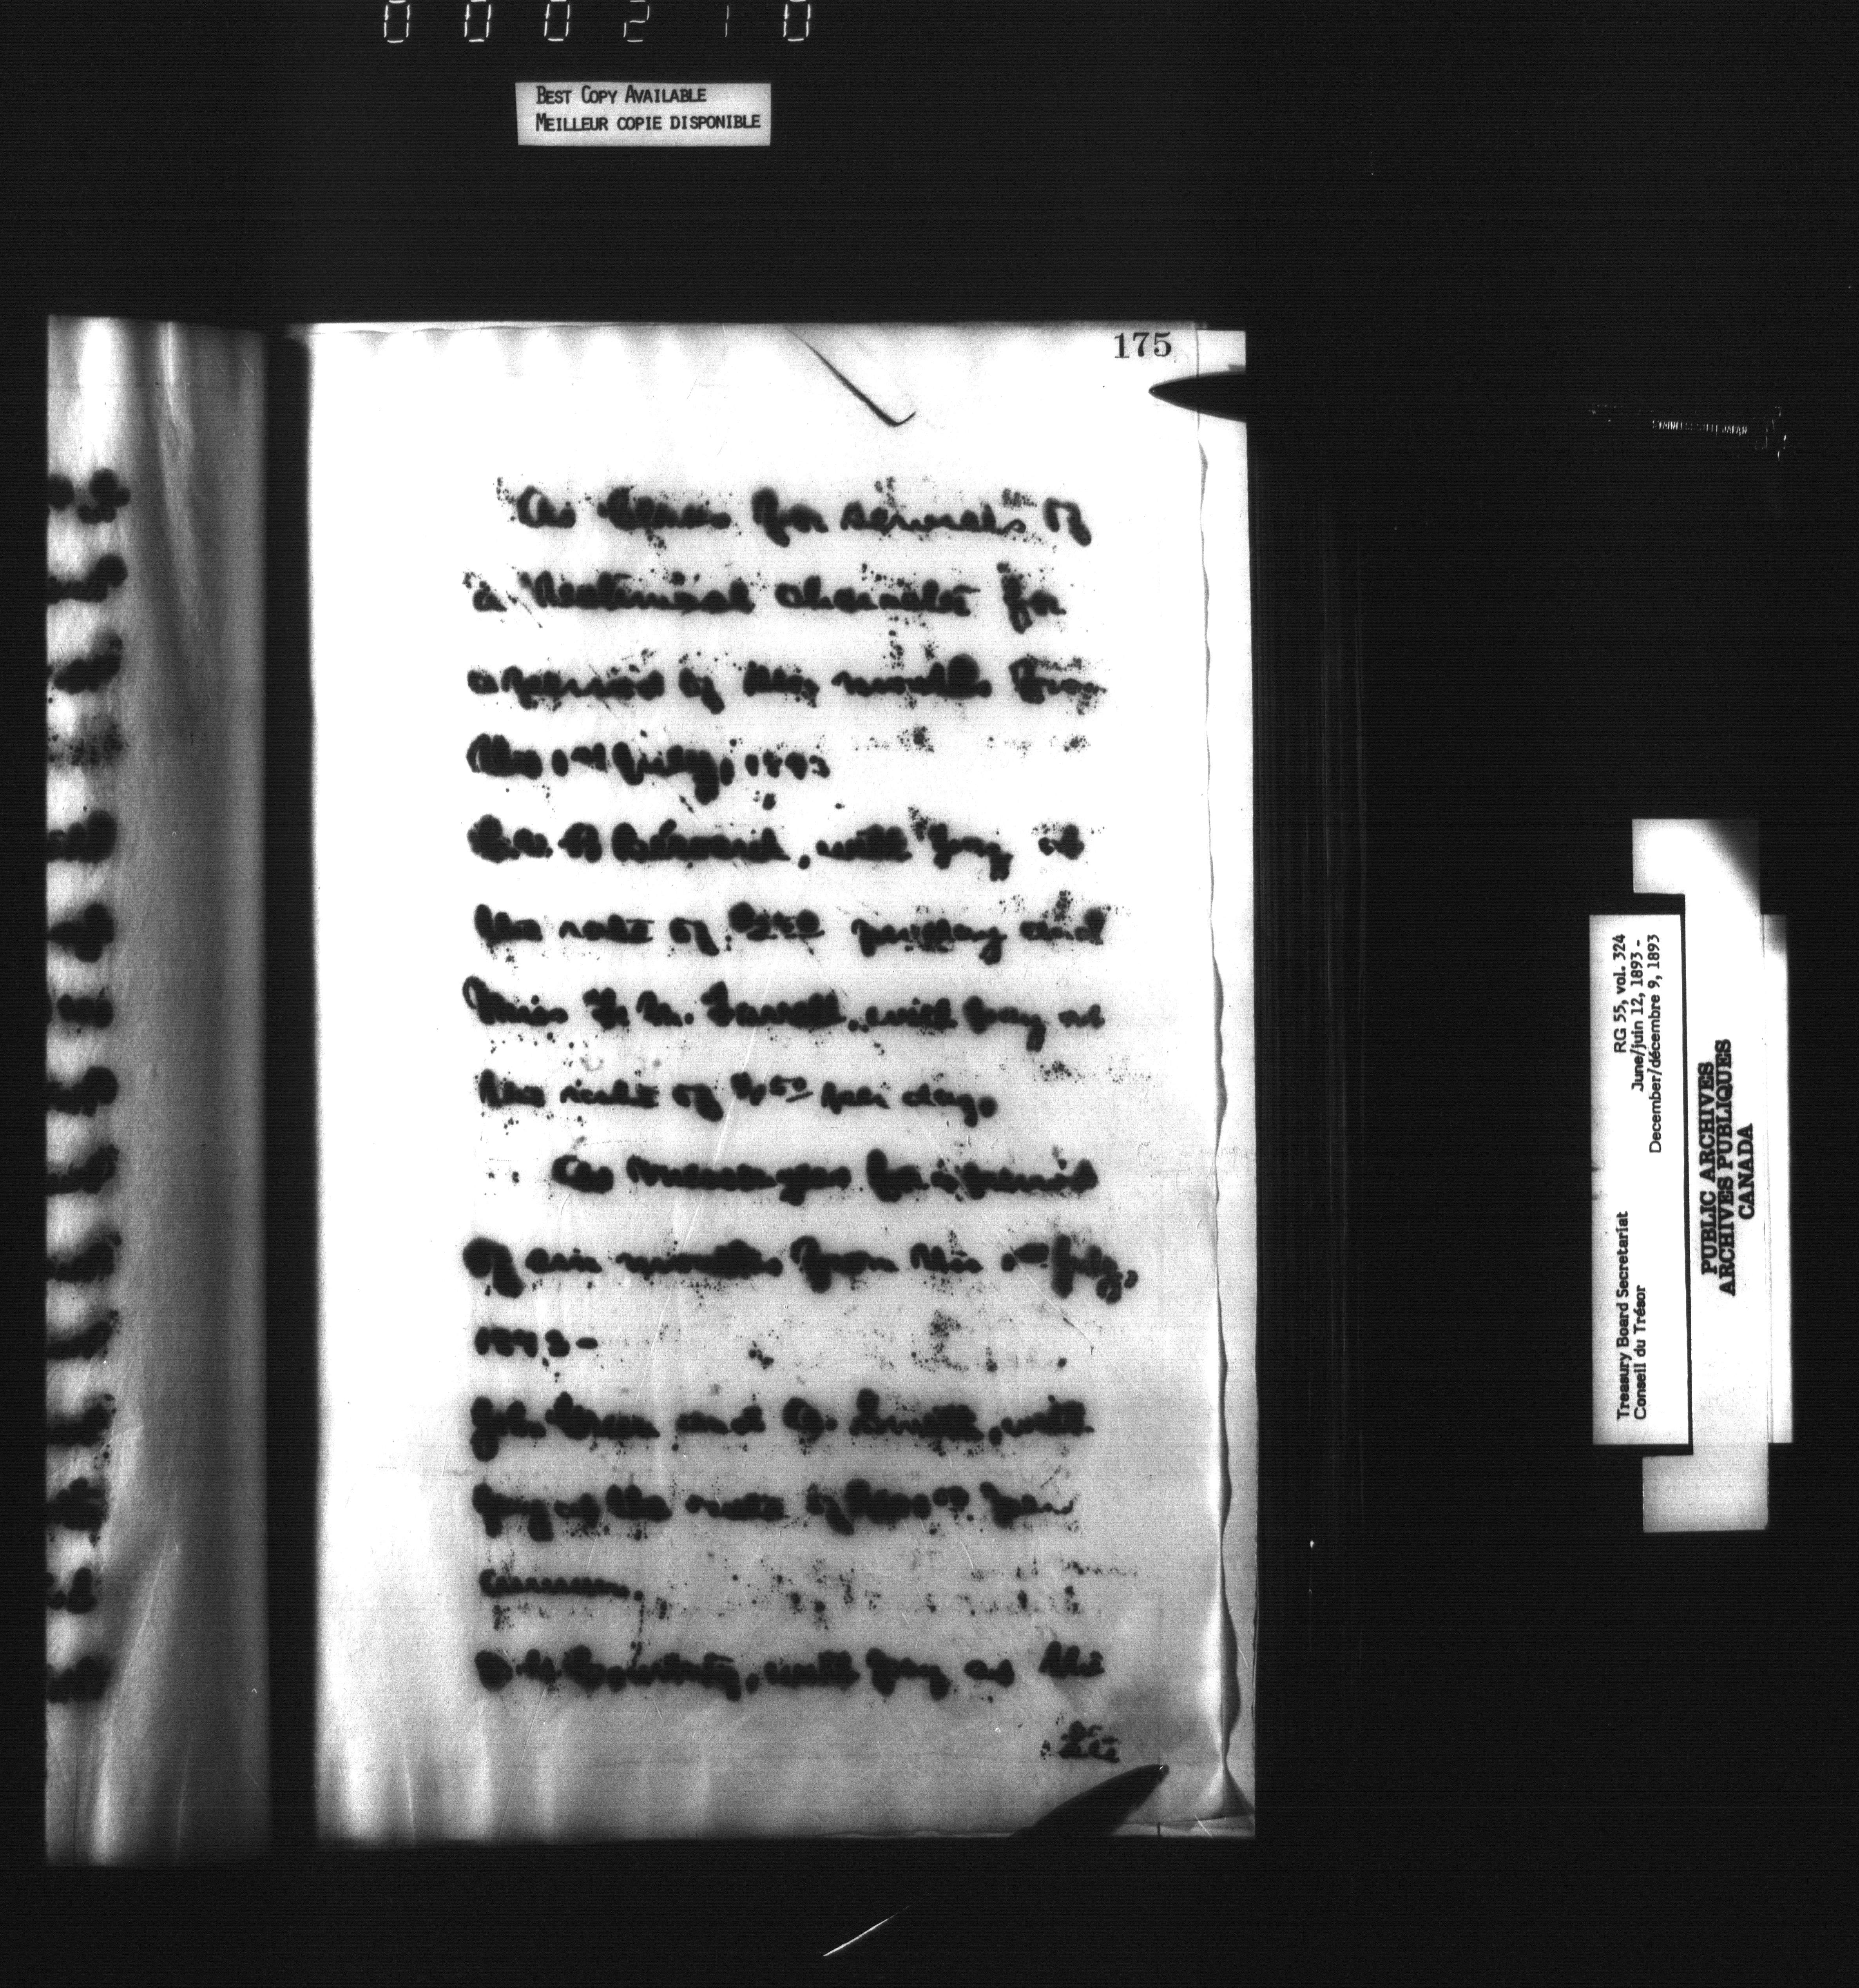 000210
BEST COPY AVAILABLE
MEILLEUR COPIE DISPONIBLE
175
As Clerks for services of
a technical character for
a period of six months from
the 1st July, 1893
with pay at
the rate of per day and
Miss F. M. Farrell, with pay at
the rate of $1.50 per day.
As messenger for a period
of six months from the 1st July,
1893-
John and Smith, with
pay at the rate of per
annum.
Courtney, with pay at the
STAINLESS STEEL JAPAN
RG 55, vol. 324
June/juin 12, 1893 -
December/décembre 9, 1893
Treasury Board Secretariat
Conseil du Trésor
PUBLIC ARCHIVES
ARCHIVES PUBLIQUES
CANADA